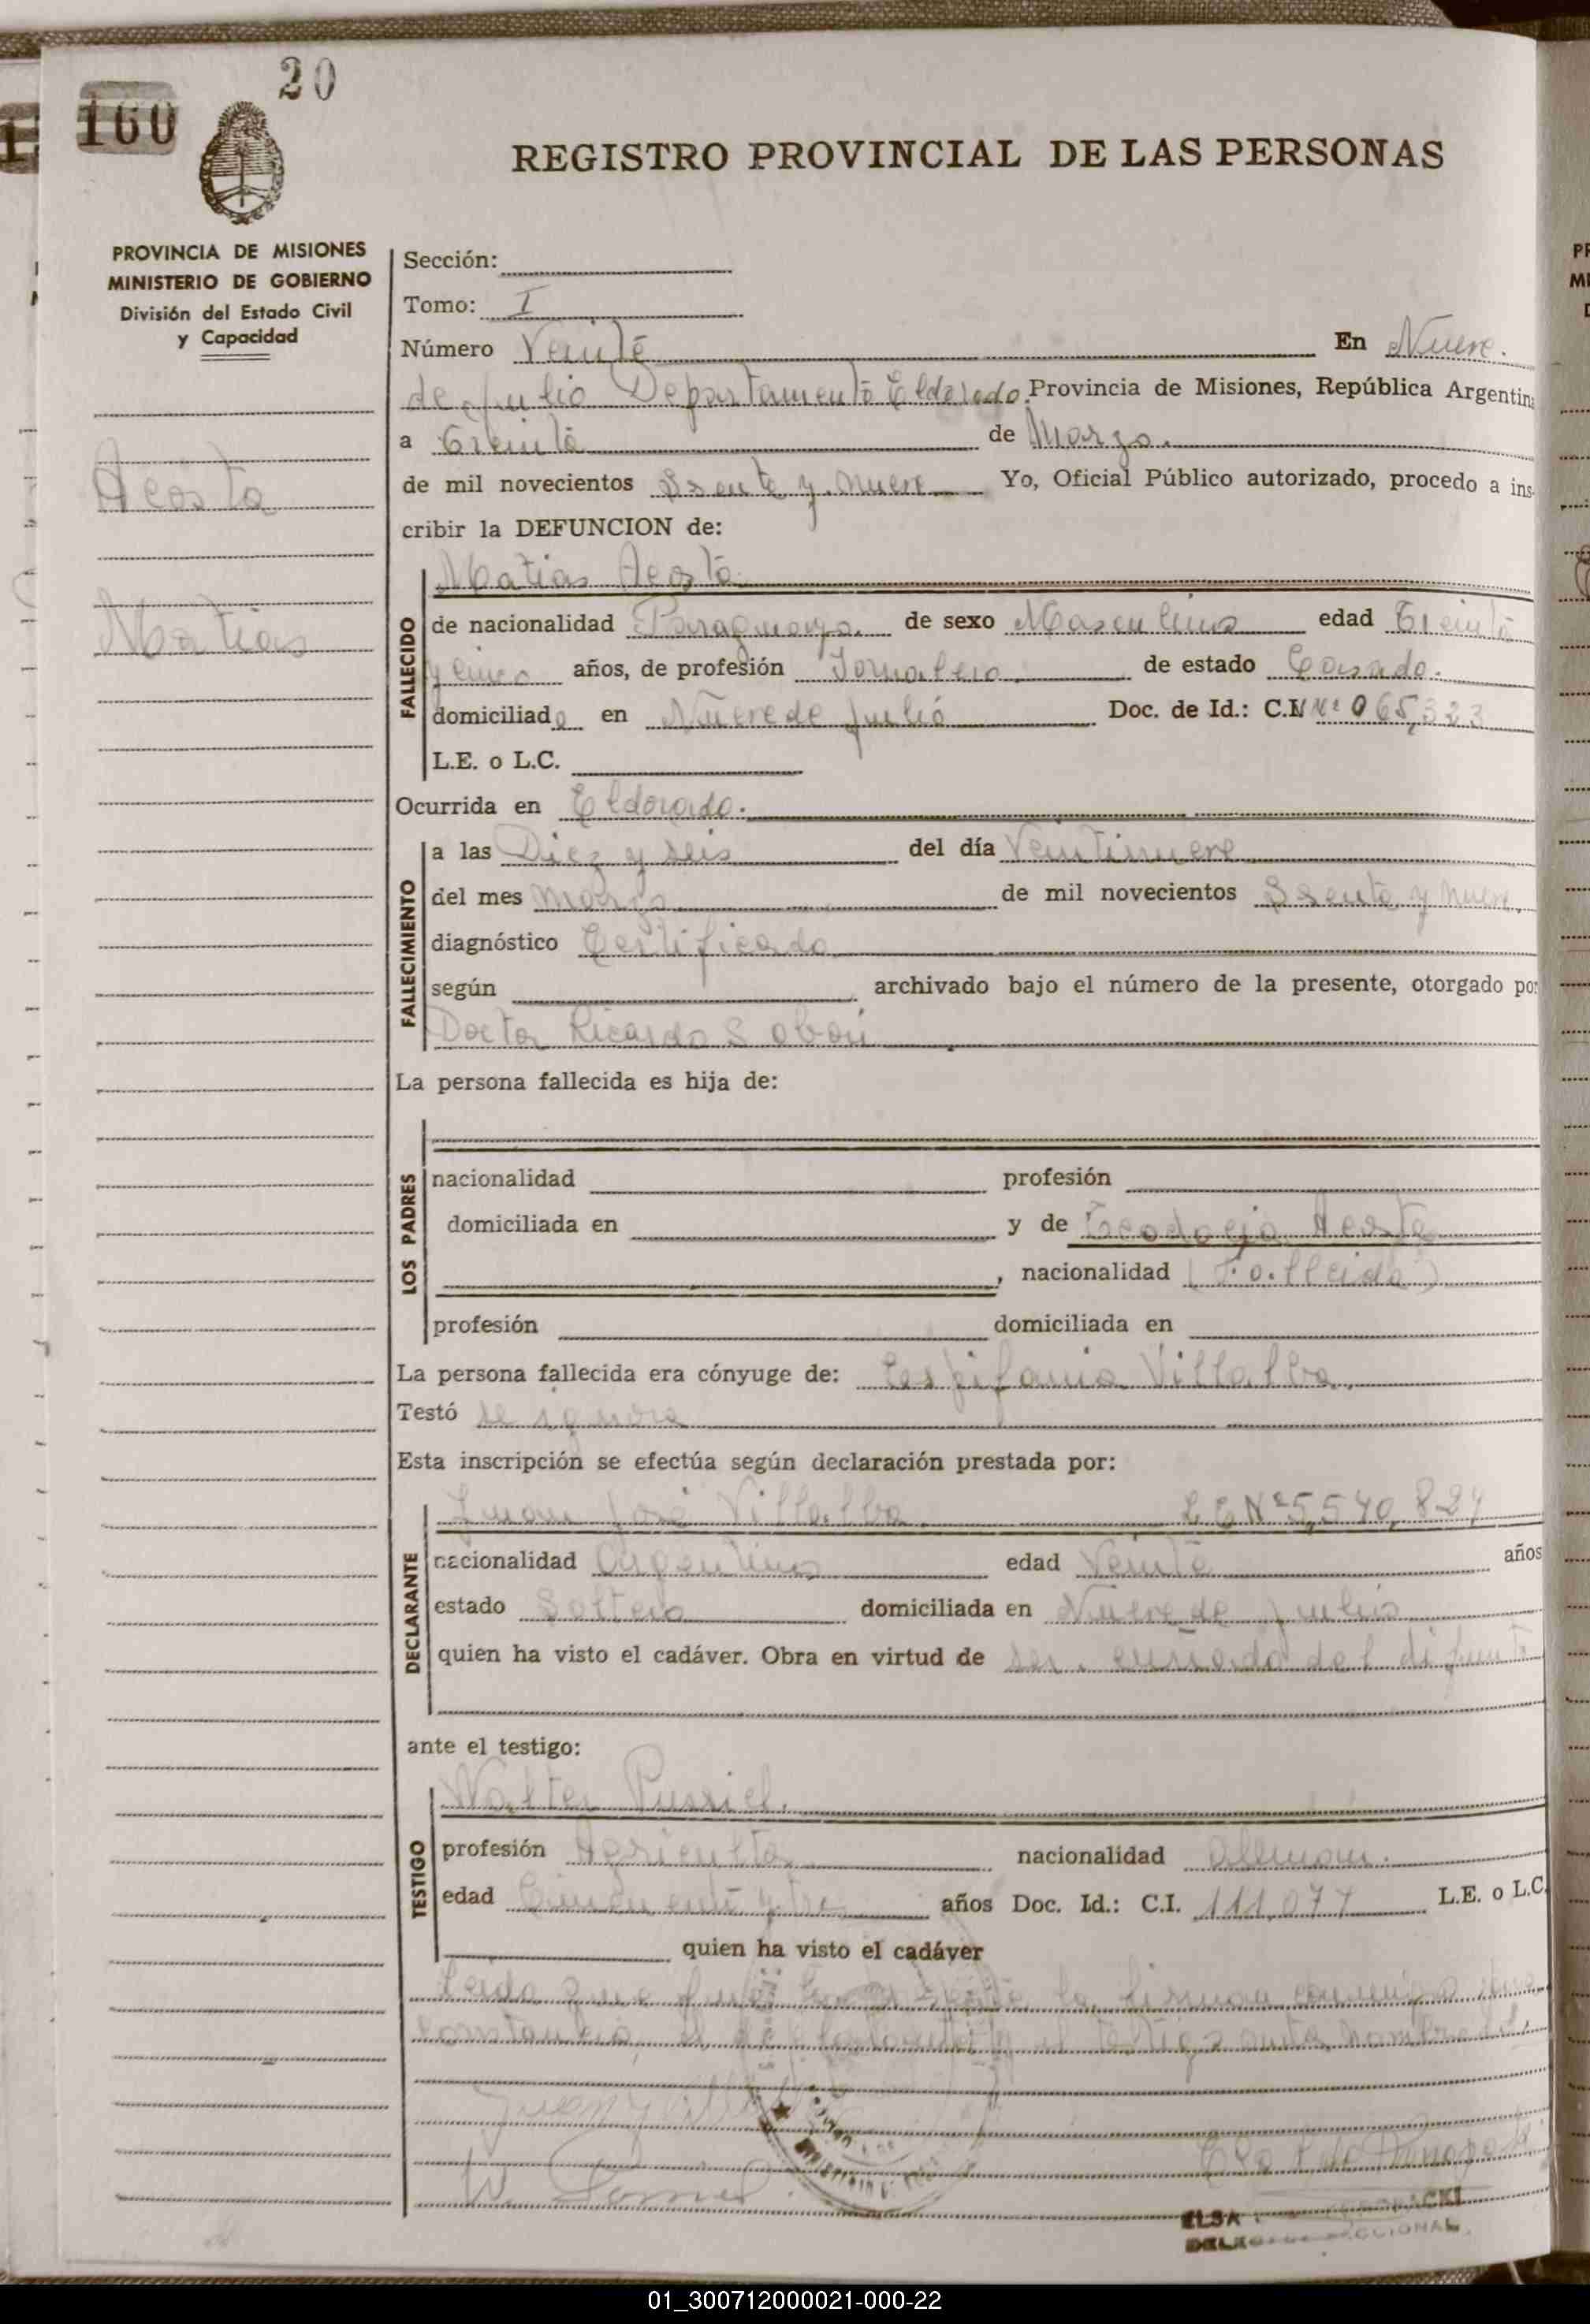 20
160
REGISTRO PROVINCIAL DE LAS PERSONAS
PROVINCIA DE MISIONES
MINISTERIO DE GOBIERNO
División del Estado Civil
y Capacidad
Acosta
Matias
Sección:
Tomo: I
Número Veinte En Nueve
de Julio Departamento Eldorado Provincia de Misiones, República Argentin
a Treinta de Marzo.
de mil novecientos Ssenta y nueve Yo, Oficial Público autorizado, procedo a ins-
cribir la DEFUNCION de:
FALLECIDO
Matias Acosta
de nacionalidad Paraguaya. de sexo Masculino edad Treinta
y cinco años, de profesión Jornalero de estado Casado.
domiciliado en Nueve de Julio Doc. de Id.: C.I Nº 065,323
L.E. o L.C.
Ocurrida en Eldorado.
FALLECIMIENTO
a las Diez y seis del día Veintinueve
del mes Marzo de mil novecientos Ssenta y nueve
diagnóstico Certificado
según archivado bajo el número de la presente, otorgado por
Doctor Ricardo
La persona fallecida es hija de:
LOS PADRES
nacionalidad profesión
domiciliada en y de Acosta
, nacionalidad (Fallecida)
profesión domiciliada en
La persona fallecida era cónyuge de: Villalba
Testó se ignora
Esta inscripción se efectúa según declaración prestada por:
DECLARANTE
Juan José Villalba. Nº 5,540,824
nacionalidad Argentino edad Veinte años
estado Soltero domiciliada en Nueve de Julio
quien ha visto el cadáver. Obra en virtud de ser cuñado del difunto
ante el testigo:
TESTIGO
Walter
profesión Agricultor nacionalidad Aleman.
edad Cincuenta y tres años Doc. Id.: C.I. 111,077 L.E. o L.C.
quien ha visto el cadáver
Leida que fue la firman conmigo
el declarante y el testigo nombrados
ELSA
01_300712000021-000-22